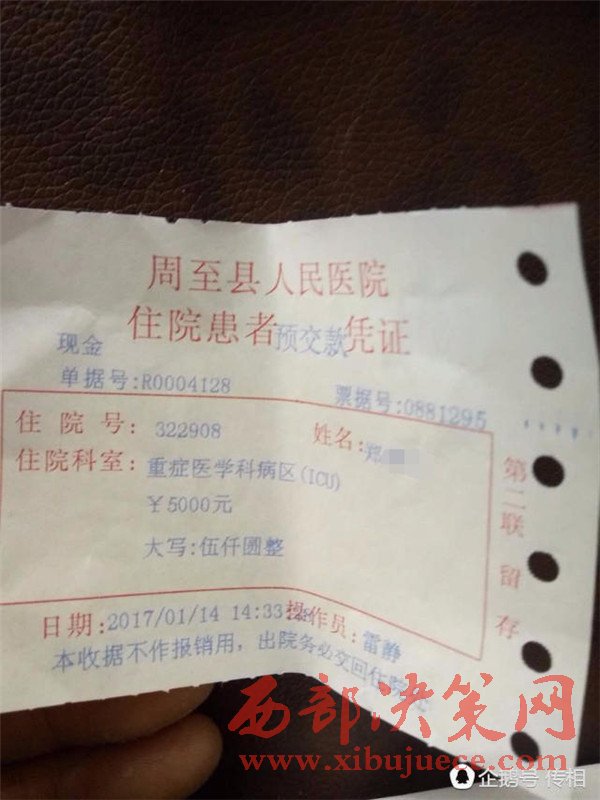 周至县人民医院
住院患者预交款凭证
现金
单据号:R0004128
票据号:0881295
住院号: 322908
姓名:郑
住院科室: 重症医学科病区(ICU)
￥5000元
大写:伍仟圆整
日期:2017/01/14 14:33
操作员:雷静
本收据不作报销用，出院务必交回住院
第二联留存
西部决策网
www.xibujuece.com
企鹅号 传相